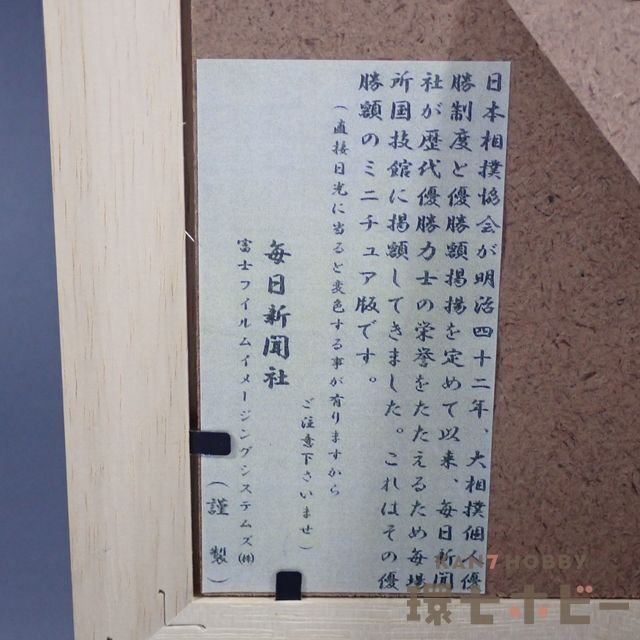 日本相撲協会が明治四十二年、大相撲個人優
勝制度と優勝額掲揚を定めて以来、毎日新聞
社が歴代優勝力士の栄誉をたたえるため毎場
所国技館に掲額してきました。これはその優
勝額のミニチュア版です。
(直接日光に当ると変色する事が有りますから
ご注意下さいませ)
毎日新聞社
富士フイルムイメージングシステムズ㈱
(謹製)
KAN7HOBBY
環七ホビー